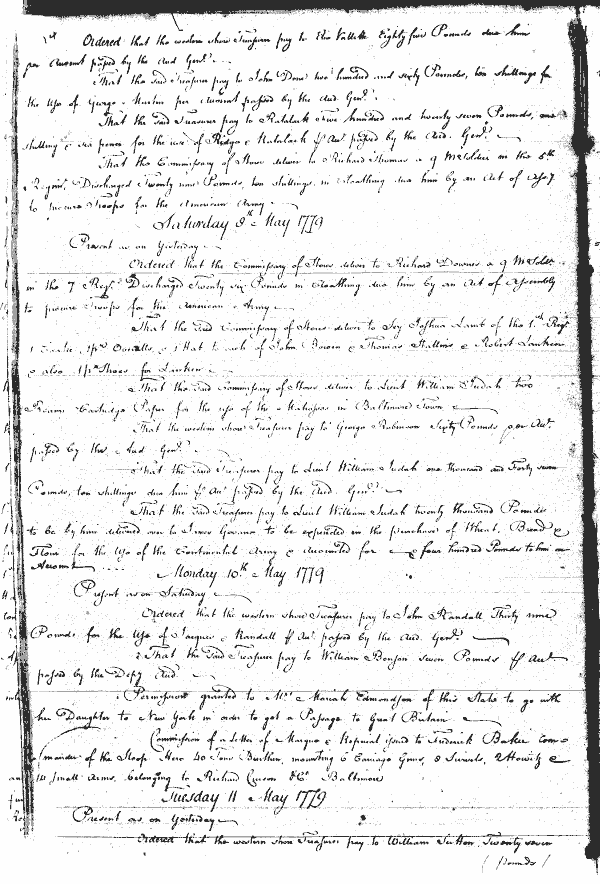 Ordered that the western shore Treasurer pay to Elie Vallette Eighty five Pounds due him
per Account passed by the Aud. Genl.
That the said Treasurer pay to John Dorr two hundred and sixty Pounds, ten shillings for
the Use of George per Account passed by the Aud. Genl.
That the said Treasurer pay to Ratalack Five hundred and twenty seven Pounds, one
shilling & six pence for the use of Ridge & Ratalack ⅌ Acct. passed by the Aud. Genl.
That the Commissary of Stores deliver to Richard Thomas a 9 Mo Soldier in the 5th
Regimt. Discharged Twenty nine Pounds, ten shillings, in Cloathing due him by an Act of Assy
to procure Troops for the American Army
Saturday 8th May 1779
Present as on Yesterday
Ordered that the Commissary of Stores deliver to Richard Downes a 9 Mo Soldr.
in the 7 Regt. Discharged Twenty six Pounds in Cloathing due him by an Act of Assembly
to procure Troops for the American Army
That the said Commissary of Stores deliver to Joshua Lamb of the 1st Regt.
1 pr. Overalls, & 1 Hat to each of John Bowen & Thomas Stallins & Robert Lankin
& also 1 pr. Shoes for Lankin
That the said Commissary of Stores deliver to Lieut William Judah two
Ream Cartridge Paper for the use of the Matrosses in Baltimore Town
That the western shore Treasurer pay to George Robinson Sixty Pounds per Acct.
passed by the Aud. Genl.
That the said Treasurer pay to Lieut William Judah one thousand and Forty seven
Pounds, ten shillings due him ⅌ Acct. passed by the Aud. Genl.
That the said Treasurer pay to Lieut William Judah twenty thousand Pounds
to be by him delivered over to to be expended in the purchase of Wheat, Bread &
Flour for the Use of the Continental Army & accounted for & four hundred Pounds to him on
Account
Monday 10th May 1779
Present as on Saturday
Ordered that the western shore Treasurer pay to John Randall Thirty nine
Pounds for the Use of Jacques & Randall ⅌ Acct. passed by the Aud. Genl.
That the said Treasurer pay to William Benson seven Pounds ⅌ Acct.
passed by the Depy Aud.
Permission granted to Mrs. Mariah Edmondson of this State to go with
her Daughter to New York in order to get a Passage to Great Britain
Commission of a Letter of Marque & Reprisal issued to Frederick Baker Com-
mander of the Sloop Hero 40 Tons Burthen, mounting 6 Carriage Guns, 8 Swivels, 2 Howitz &
10 Small Arms, belonging to Richard Curson & Co. Baltimore
Tuesday 11 May 1779
Present as on Yesterday
Ordered that the western shore Treasurer pay to William Sutton Twenty seven
(Pounds)